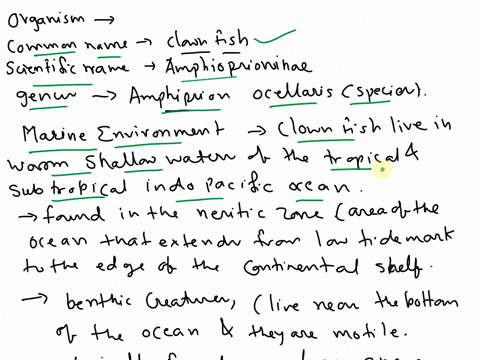 Organism →
Common name → clown fish ✓
Scientific name → Amphioprioninae
genus → Amphiprion ocellaris (species).
Marine Environment → Clown fish live in
warm shallow water of the tropical &
sub tropical indo pacific ocean.
→ found in the neritic zone (area of the
ocean that extends from low tide mark
to the edge of the continental shelf.
→ benthic creatures, (live near the bottom
of the ocean & they are motile.